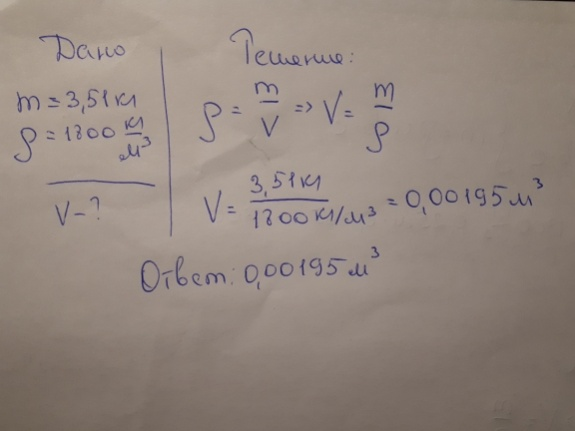 Дано
m = 3,51 кг
ρ = 1800 кг/м³
V - ?
Решение:
ρ = m/V => V = m/ρ
V = 3,51 кг / 1800 кг/м³ = 0,00195 м³
Ответ: 0,00195 м³